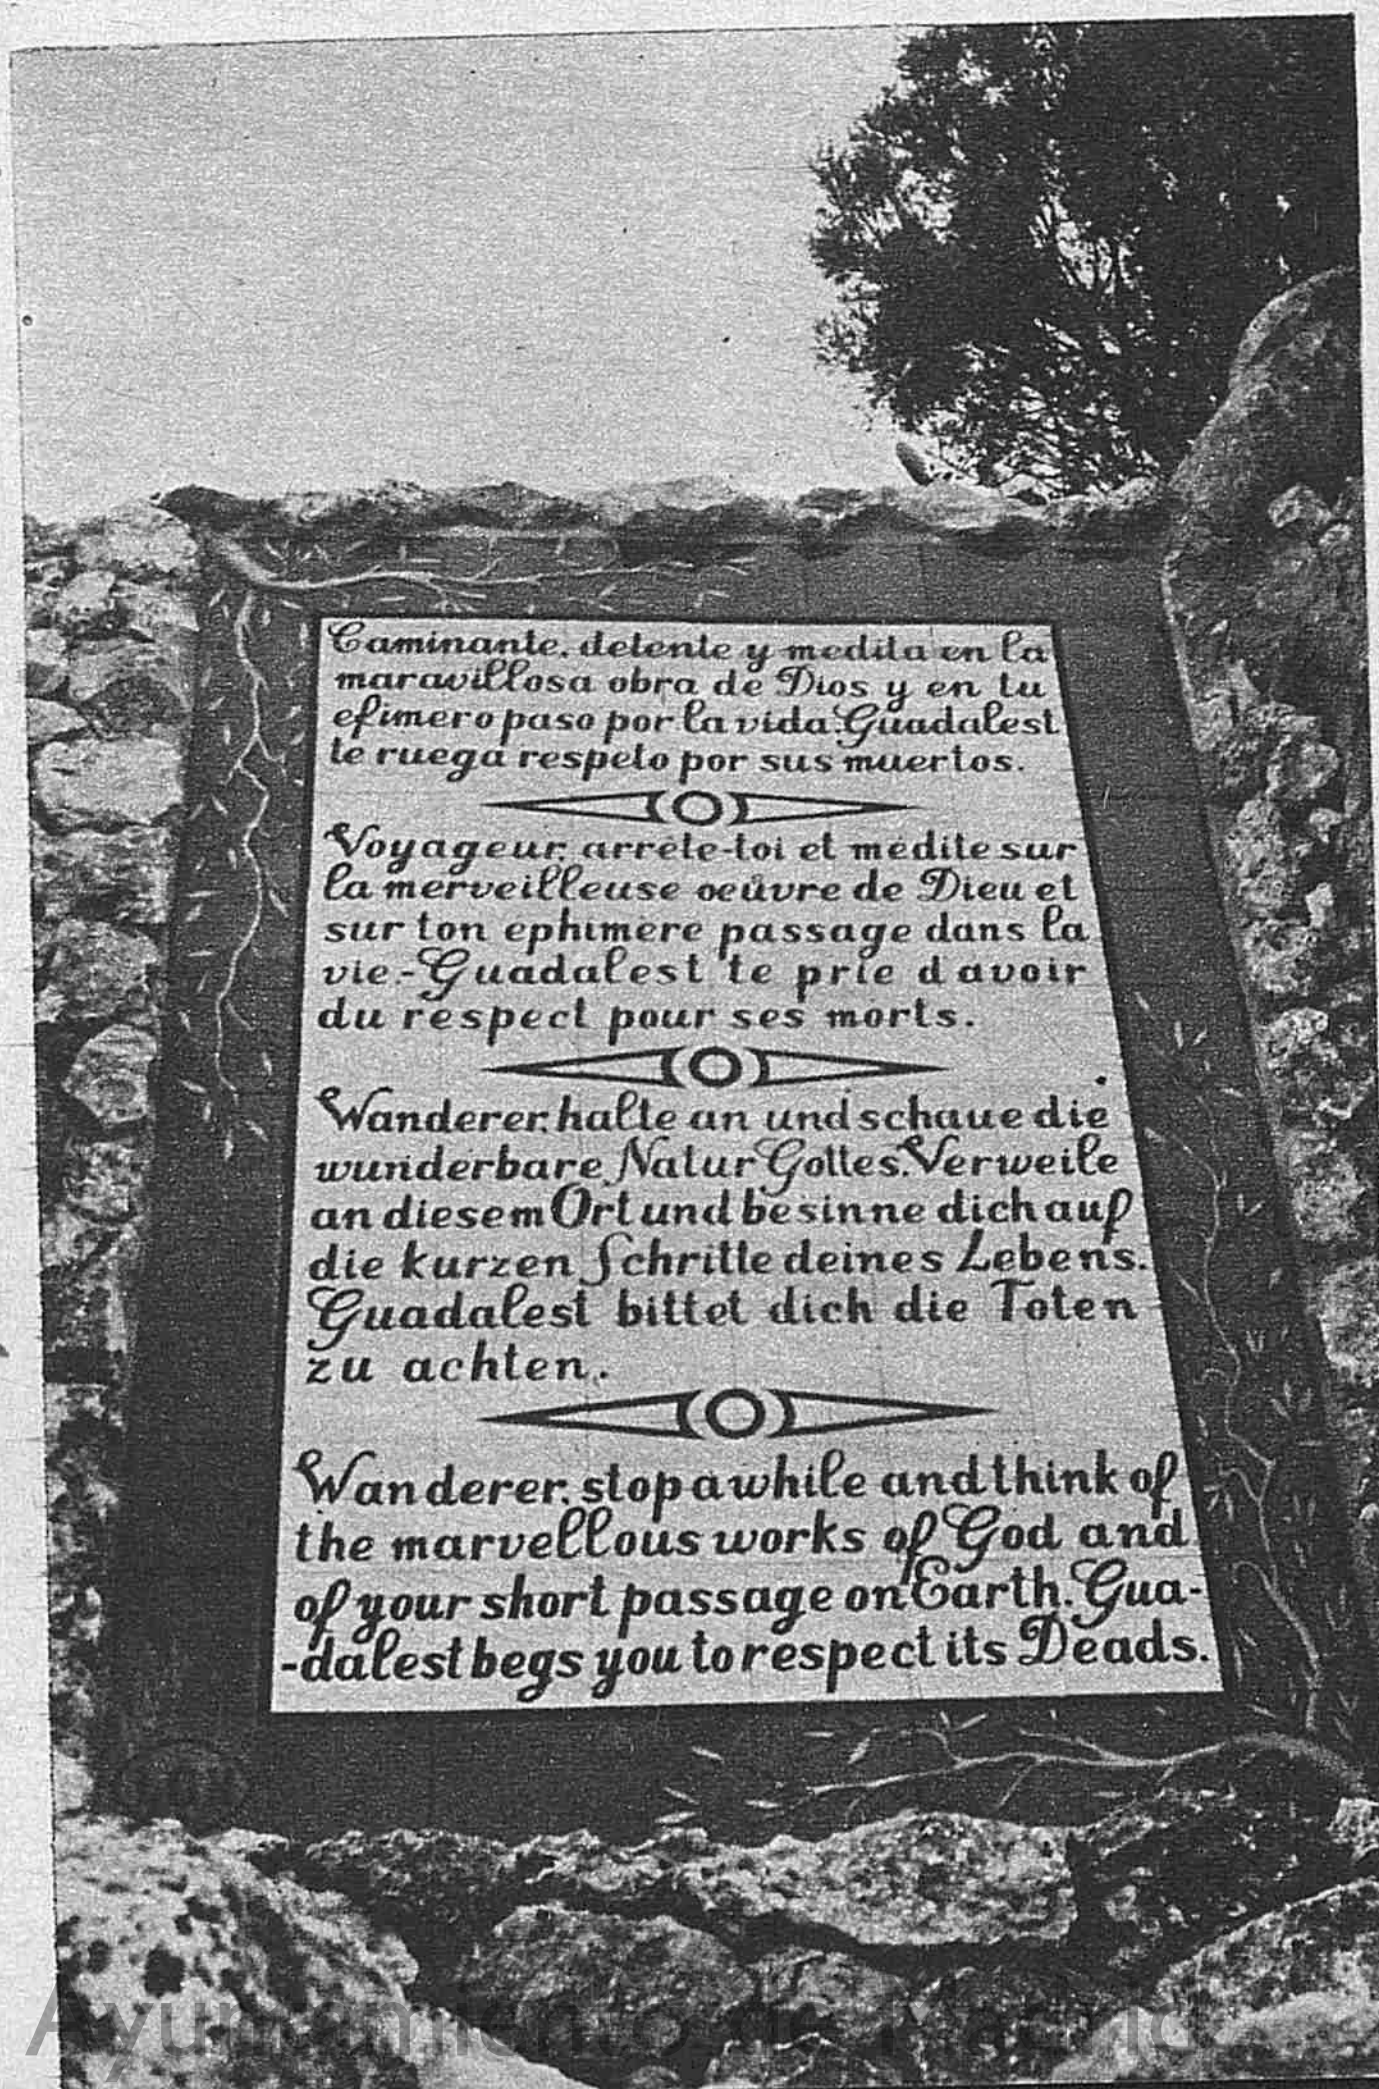 Caminante, detente y medita en la
maravillosa obra de Dios y en tu
efimero paso por la vida. Guadalest
te ruega respeto por sus muertos.
Voyageur, arrête-toi et médite sur
la merveilleuse oeuvre de Dieu et
sur ton éphimère passage dans la
vie.-Guadalest te prie d'avoir
du respect pour ses morts.
Wanderer, halte an und schaue die
wunderbare Natur Gottes. Verweile
an diesem Ort und besinne dich auf
die kurzen Schritte deines Lebens.
Guadalest bittet dich die Toten
zu achten.
Wanderer, stop awhile and think of
the marvellous works of God and
of your short passage on Earth. Gua-
-dalest begs you to respect its Deads.
Ayuntamiento de Madrid